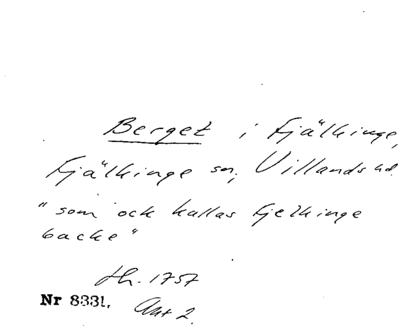 Berget i Fjälkinge,
Fjälkinge sn, Villands hd.
"som ock kallas Fjelkinge
backe"
Hh. 1757
Nr 8331. Akt 2.